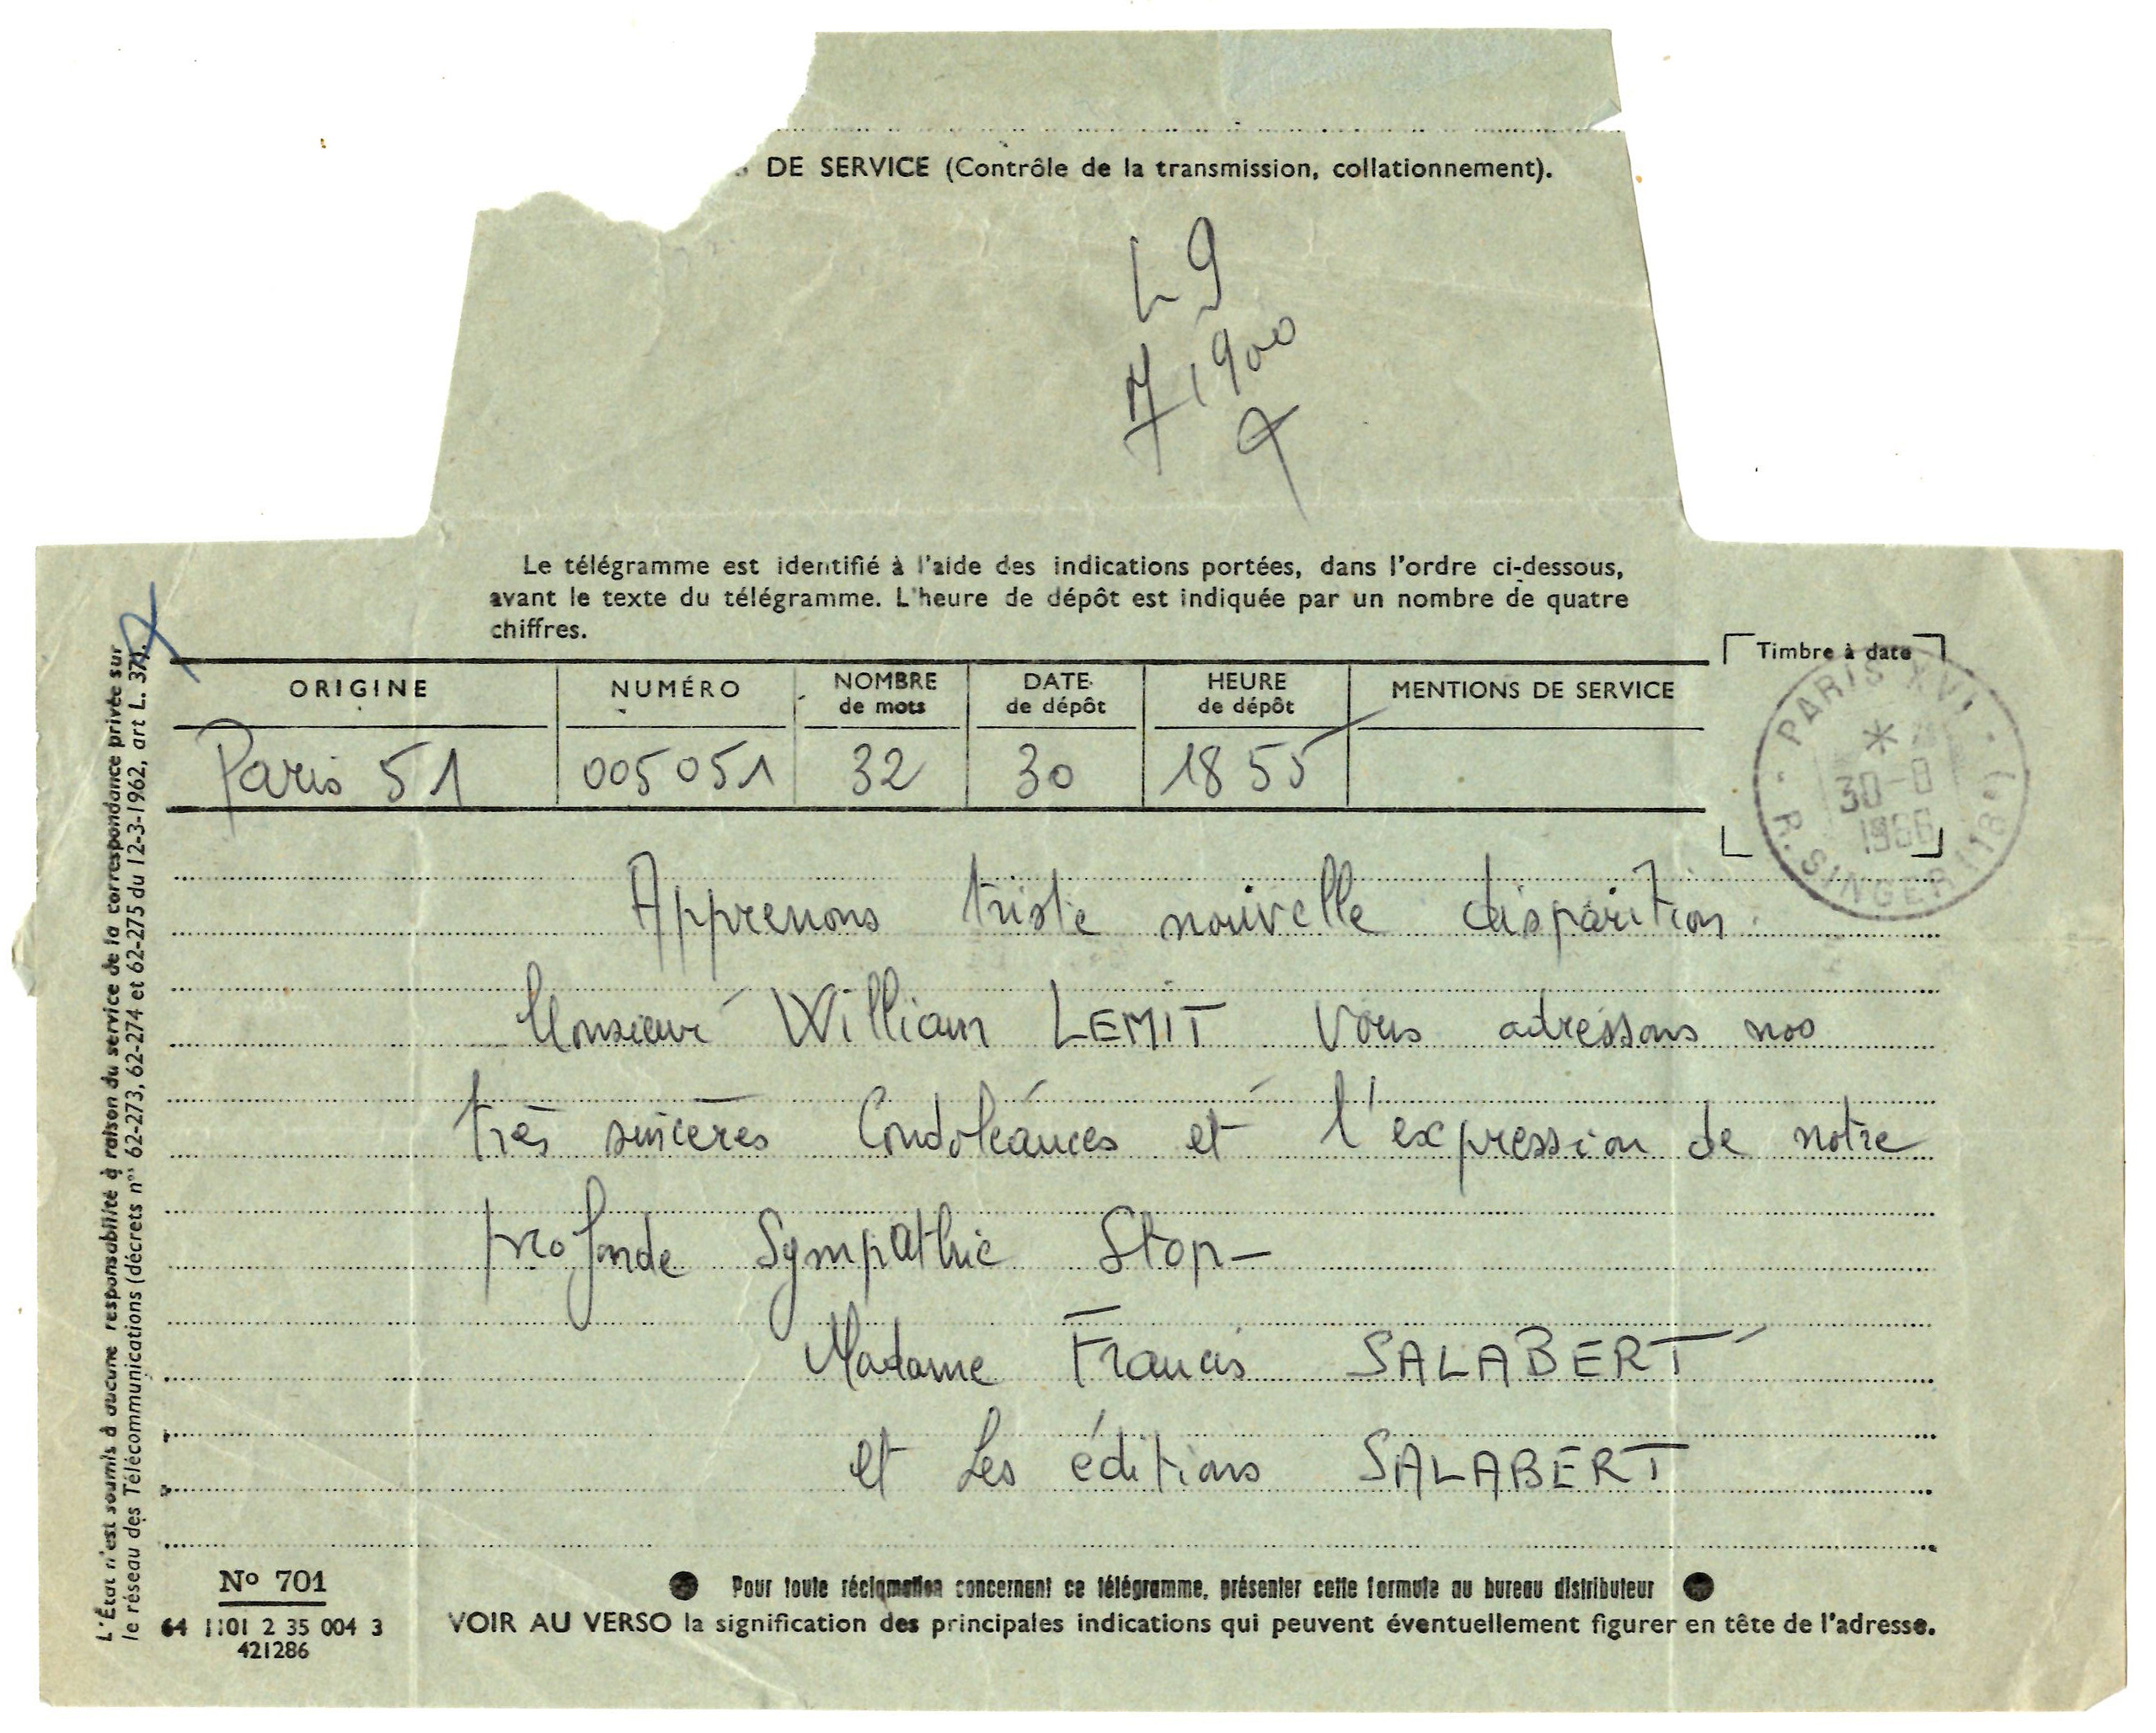 DE SERVICE (Contrôle de la transmission, collationnement).
L 9
1900
Le télégramme est identifié à l'aide des indications portées, dans l'ordre ci-dessous,
avant le texte du télégramme. L'heure de dépôt est indiquée par un nombre de quatre
chiffres.
Timbre à date
ORIGINE NUMÉRO NOMBRE de mots DATE de dépôt HEURE de dépôt MENTIONS DE SERVICE
Paris 51 005051 32 30 1855
PARIS XVI
30-8
1966
R. SINGER (18e)
Apprenons triste nouvelle disparition
Monsieur William LEMIT Vous adressons nos
très sincères Condoléances et l'expression de notre
profonde Sympathie Stop-
Madame Francis SALABERT
et Les éditions SALABERT
L'État n'est soumis à aucune responsabilité à raison du service de la correspondance privée sur
le réseau des Télécommunications (décrets nos 62-273, 62-274 et 62-275 du 12-3-1962, art L. 37).
No 701
64 1101 2 35 004 3
421286
Pour toute réclamation concernant ce télégramme, présenter cette formule au bureau distributeur
VOIR AU VERSO la signification des principales indications qui peuvent éventuellement figurer en tête de l'adresse.